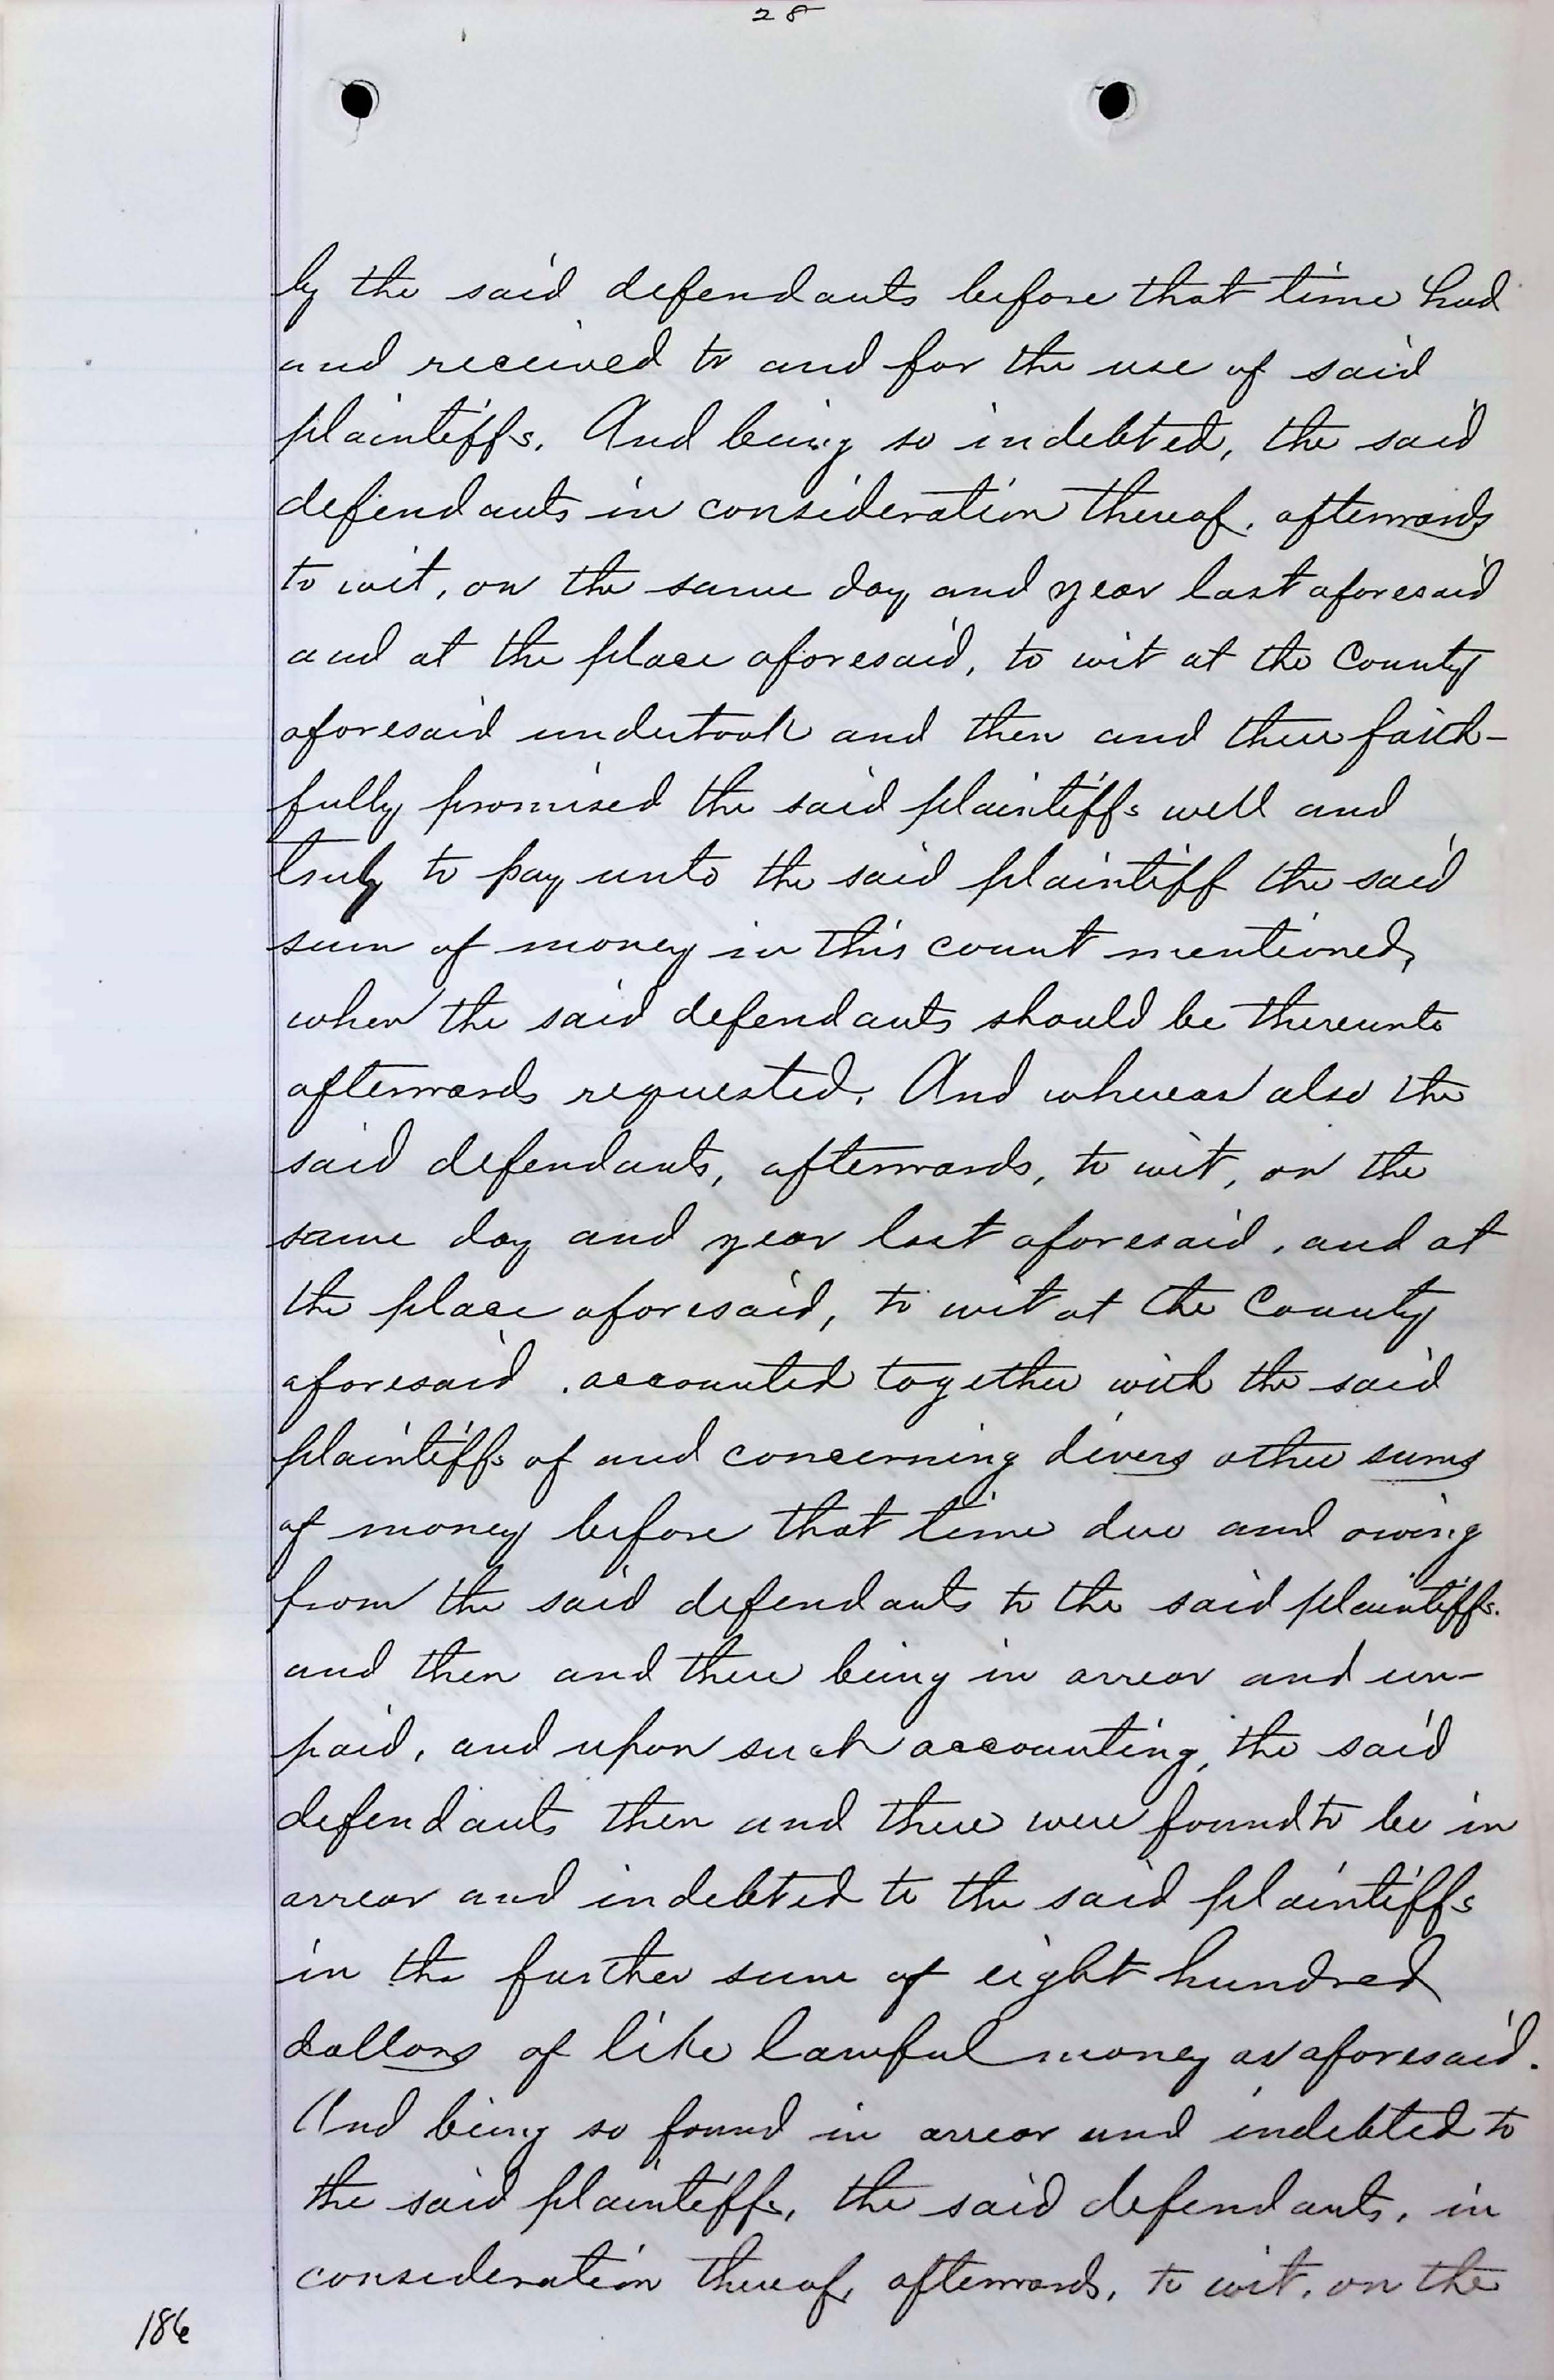 28
by the said defendants before that time had
and received to and for the use of said
plaintiffs. And being so indebted, the said
defendants in consideration thereof, afterwards
to wit, on the same day and year last aforesaid
and at the place aforesaid, to wit at the County
aforesaid undertook and then and there faith-
fully promised the said plaintiffs well and
truly to pay unto the said plaintiff the said
sum of money in this count mentioned,
when the said defendants should be thereunto
afterwards requested. And whereas also the
said defendants, afterwards, to wit, on the
same day and year last aforesaid, and at
the place aforesaid, to wit at the County
aforesaid, accounted together with the said
plaintiffs of and concerning divers other sums
of money before that time due and owing
from the said defendants to the said plaintiffs.
and then and there being in arrear and un-
paid, and upon such accounting, the said
defendants then and there were found to be in
arrear and indebted to the said plaintiffs
in the further sum of eight hundred
dollars of like lawful money as aforesaid.
And being so found in arrear and indebted to
the said plaintiffs, the said defendants, in
consideration thereof, afterwards, to wit, on the
186